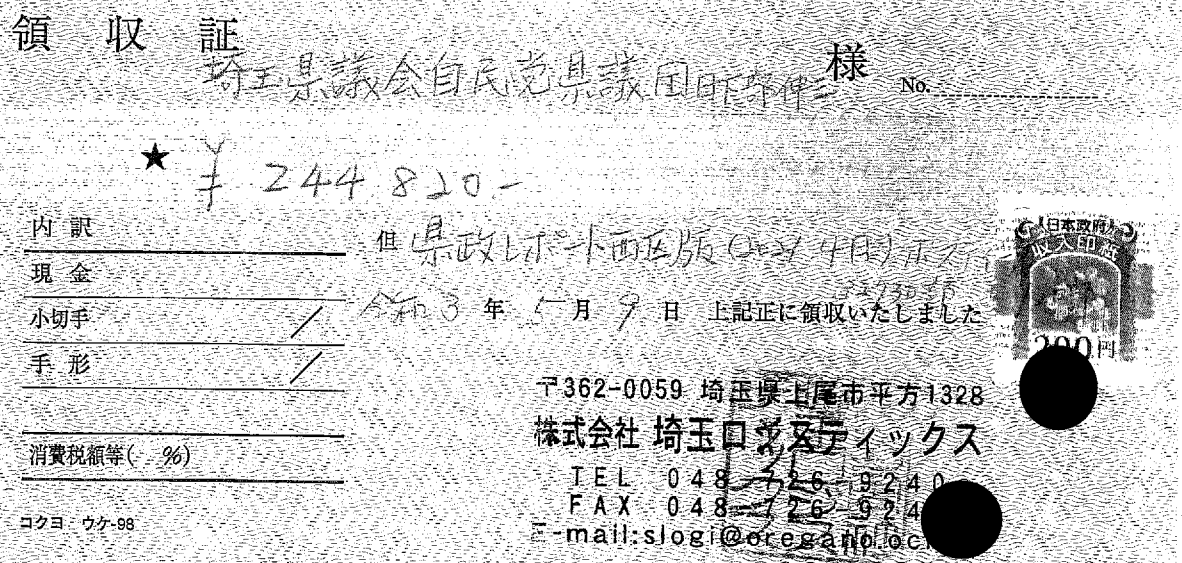 領収証
埼玉県議会自民党県議団 日下部伸三 様 No.
★ ¥244820-
内訳
現金
小切手
手形
消費税額等( %)
コクヨ ウケ-98
但 県政レポート西区版(2021 4月)ポスティ
令和3年5月9日 上記正に領収いたしました
日本政府
収入印紙
200円
〒362-0059 埼玉県上尾市平方1328
株式会社 埼玉ロジスティックス
TEL 048-726-9240
FAX 048-726-924
E-mail:slogi@oregano.oc